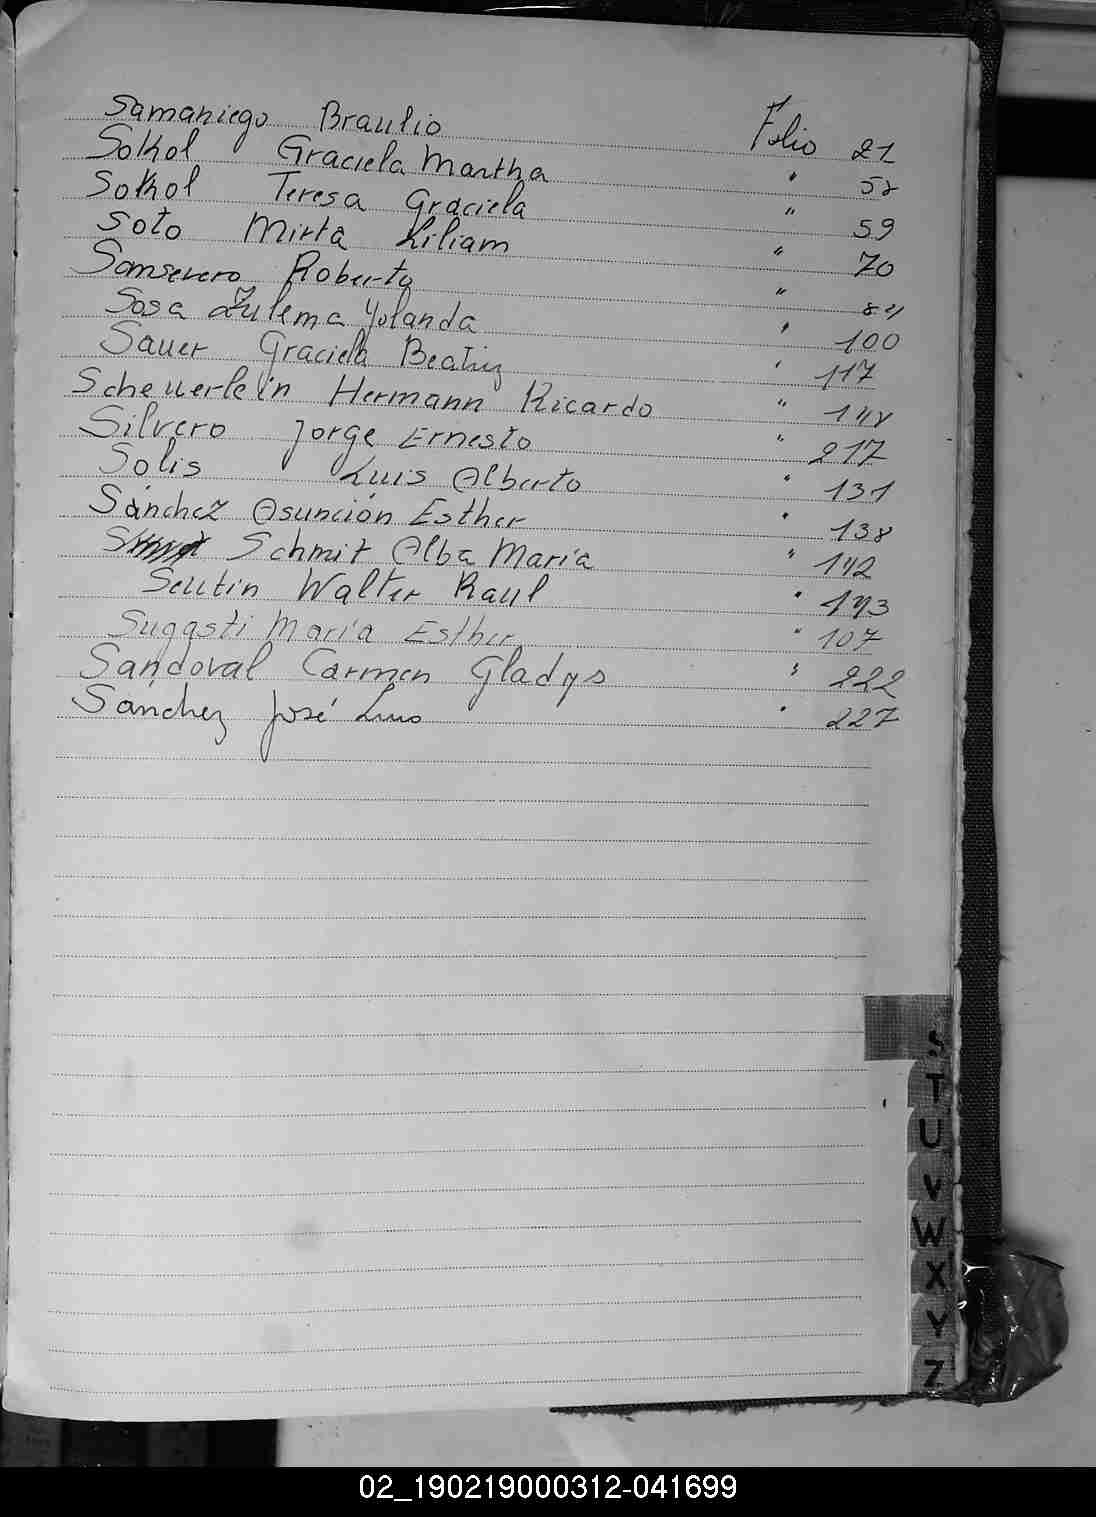 Samaniego Braulio Folio 21
Sokol Graciela Martha " 58
Sokol Teresa Graciela " 59
Soto Mirta Liliam " 70
Sansevero Roberto "
Sosa Zulema Yolanda " 100
Sauer Graciela Beatriz " 117
Scheuerlein Hermann Ricardo " 148
Silvero Jorge Ernesto " 217
Solis Luis Alberto " 131
Sánchez Asunción Esther " 138
Schmit Alba María " 142
Seutin Walter Raul " 193
Sugasti María Esther " 107
Sandoval Carmen Gladys " 222
Sánchez José Luis " 227
S
T
U
V
W
X
Y
Z
02_190219000312-041699